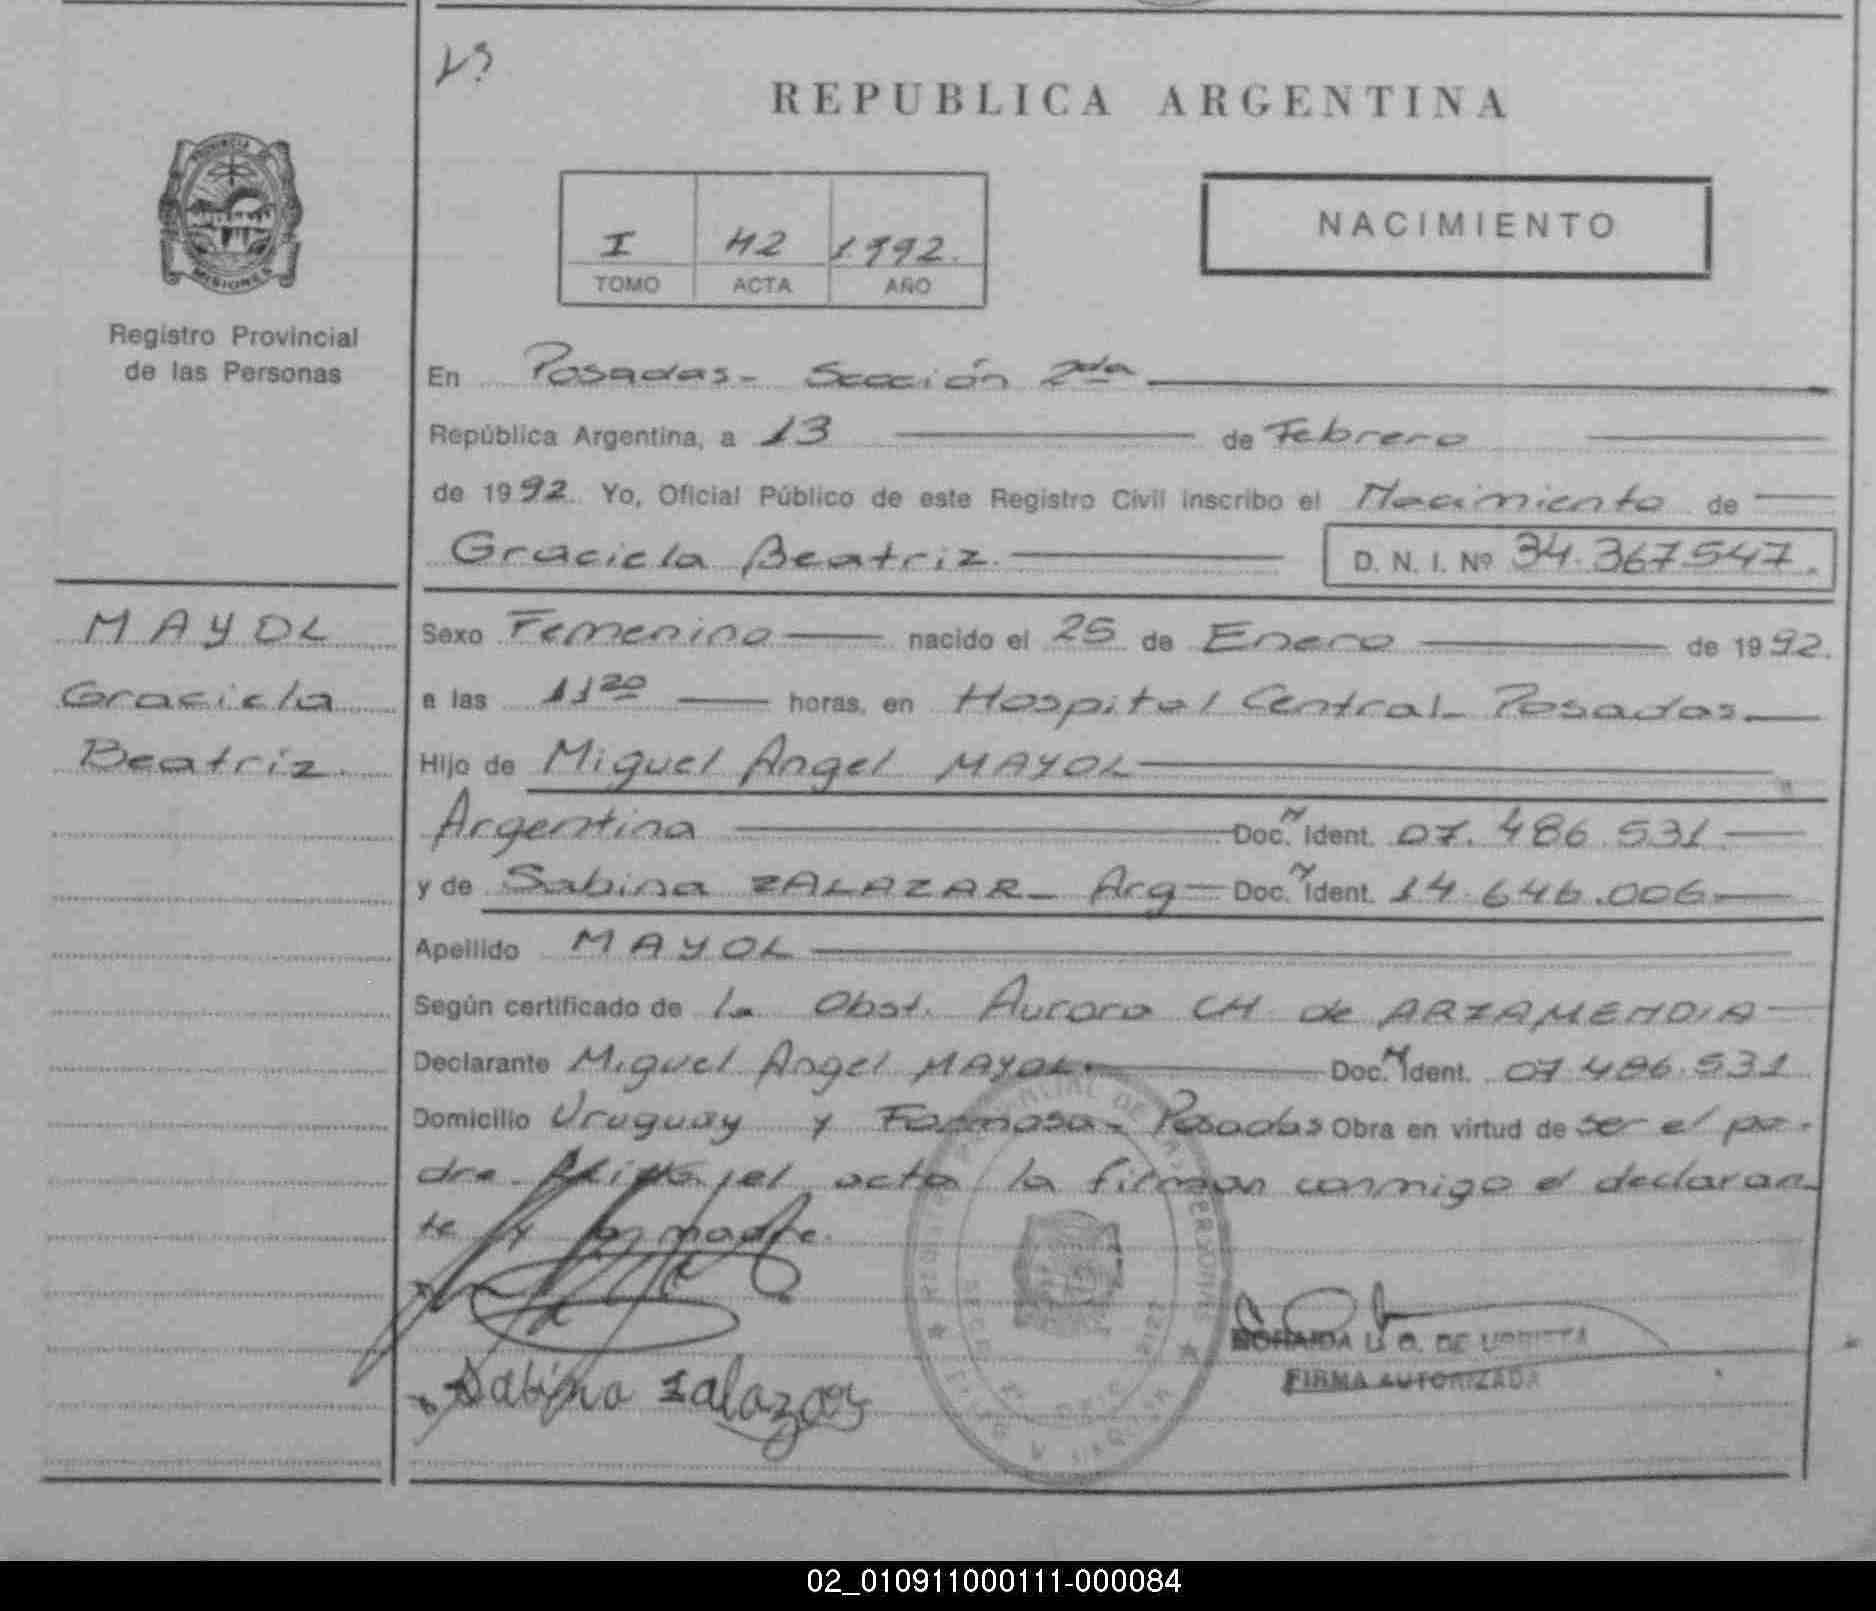 REPUBLICA ARGENTINA
PROVINCIA
MISIONES
Registro Provincial
de las Personas
I 42 1992.
TOMO ACTA AÑO
NACIMIENTO
En Posadas - Sección 2da
República Argentina, a 13 de Febrero
de 1992. Yo, Oficial Público de este Registro Civil inscribo el Nacimiento de
Graciela Beatriz. D. N. I. Nº 34.367.547.
MAYOL
Graciela
Beatriz.
Sexo Femenino nacido el 25 de Enero de 1992.
a las 11 20 horas, en Hospital Central - Posadas
Hijo de Miguel Angel MAYOL
Argentina Doc. N Ident. 07.486.531
y de Sabina ZALAZAR - Arg Doc. N Ident. 14.646.006
Apellido MAYOL
Según certificado de la Obst. Aurora CH de ARZAMENDIA
Declarante Miguel Angel MAYOL. Doc. N Ident. 07.486.531
Domicilio Uruguay y Formosa - Posadas Obra en virtud de ser el pa-
dre. el acta la firman conmigo el declaran-
te y la madre.
Sabina Zalazar
DE URRISTA
FIRMA AUTORIZADA
02_010911000111-000084